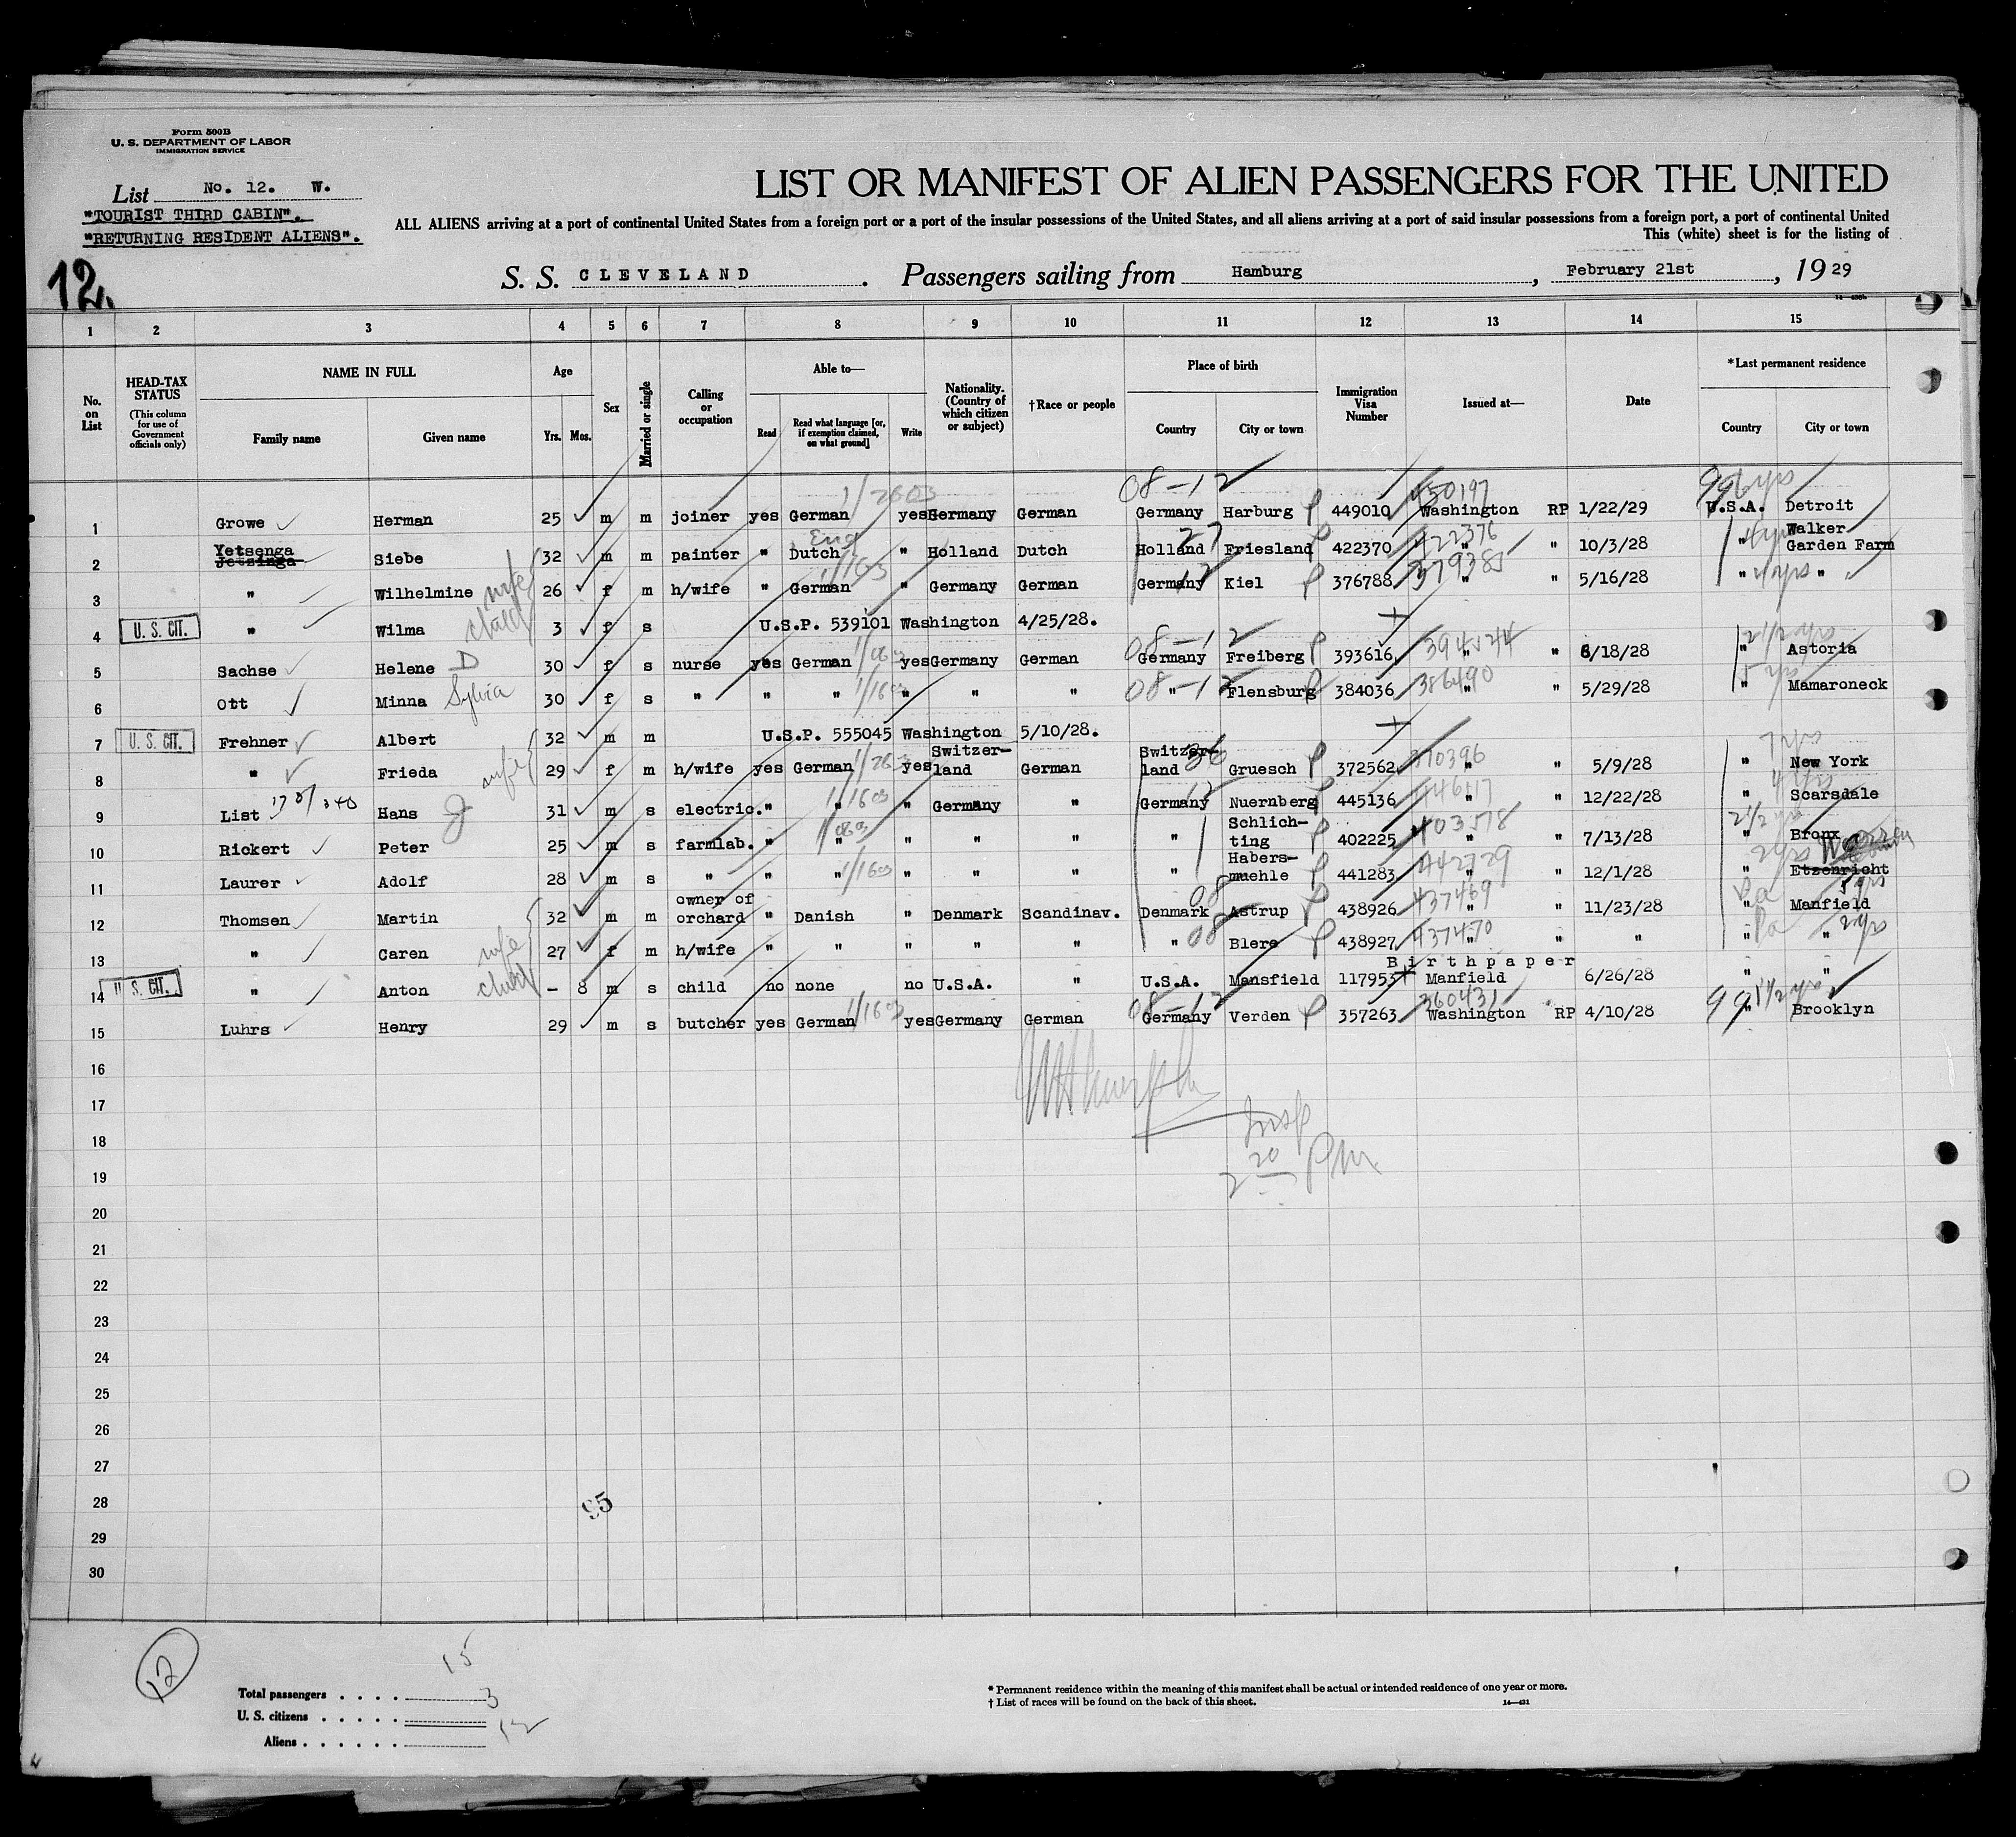 Form 500B
U. S. DEPARTMENT OF LABOR
IMMIGRATION SERVICE
List No. 12. W.
"TOURIST THIRD CABIN".
"RETURNING RESIDENT ALIENS".
12.
LIST OR MANIFEST OF ALIEN PASSENGERS FOR THE UNITED
ALL ALIENS arriving at a port of continental United States from a foreign port or a port of the insular possessions of the United States, and all aliens arriving at a port of said insular possessions from a foreign port, a port of continental United
This (white) sheet is for the listing of
S. S. CLEVELAND. Passengers sailing from Hamburg, February 21st, 1929
1 2 3 4 5 6 7 8 9 10 11 12 13 14 15
No. on List
HEAD-TAX STATUS (This column for use of Government officials only)
NAME IN FULL
Family name Given name
Age
Yrs. Mos.
Sex
Married or single
Calling or occupation
Able to—
Read Read what language [or, if exemption claimed, on what ground] Write
Nationality. (Country of which citizen or subject)
†Race or people
Place of birth
Country City or town
Immigration Visa Number
Issued at—
Date
*Last permanent residence
Country City or town
08-12 450197
1 Growe Herman 25 m m joiner yes German yes Germany German Germany Harburg 449010 Washington RP 1/22/29 U.S.A. Detroit
Eng 27 422376
2 Yetsenga Jetzinga Siebe 32 m m painter " Dutch " Holland Dutch Holland Friesland 422370 " " 10/3/28 " Walker Garden Farm
wife 12 379385
3 " Wilhelmine 26 f m h/wife " German " Germany German Germany Kiel 376788 " " 5/16/28 " "
child
4 U. S. CIT. " Wilma 3 f s U.S.P. 539101 Washington 4/25/28.
08-12 394544
5 Sachse Helene D 30 f s nurse yes German yes Germany German Germany Freiberg 393616 " 6/18/28 " Astoria
08-12 386490
6 Ott Minna Sylvia 30 f s " " " " " " " Flensburg 384036 " " 5/29/28 " Mamaroneck
7 U. S. CIT. Frehner Albert 32 m m U.S.P. 555045 Washington 5/10/28.
wife 36 370396
8 " Frieda 29 f m h/wife yes German yes Switzer-land German Switzer-land Gruesch 372562 " " 5/9/28 " New York
9 List Hans J 31 m s electric. " " " Germany " Germany Nuernberg 445136 " " 12/22/28 " Scarsdale
403578
10 Rickert Peter 25 m s farmlab. " " " " " " Schlich-ting 402225 " " 7/13/28 " Bronx
442729
11 Laurer Adolf 28 m s " " " " " " " Habers-muehle 441283 " " 12/1/28 " Etzenricht
08 437469 Pa 5 yrs
12 Thomsen Martin 32 m m owner of orchard " Danish " Denmark Scandinav. Denmark Astrup 438926 " " 11/23/28 " Manfield
wife 08 437470 Pa 2 yrs
13 " Caren 27 f m h/wife " " " " " " Blere 438927 " " " " "
child Birthpaper
14 U. S. CIT. " Anton - 8 m s child no none no U.S.A. " U.S.A. Mansfield 117953 Manfield 6/26/28 " "
08-12 360431
15 Luhrs Henry 29 m s butcher yes German yes Germany German Germany Verden 357263 Washington RP 4/10/28 " Brooklyn
16
17
Insp
18
2 20 PM
19
20
21
22
23
24
25
26
27
28
95
29
30
12
15
Total passengers . . . . 3
U. S. citizens . . . . . 12
Aliens . . . . . .
* Permanent residence within the meaning of this manifest shall be actual or intended residence of one year or more.
† List of races will be found on the back of this sheet. 14—431